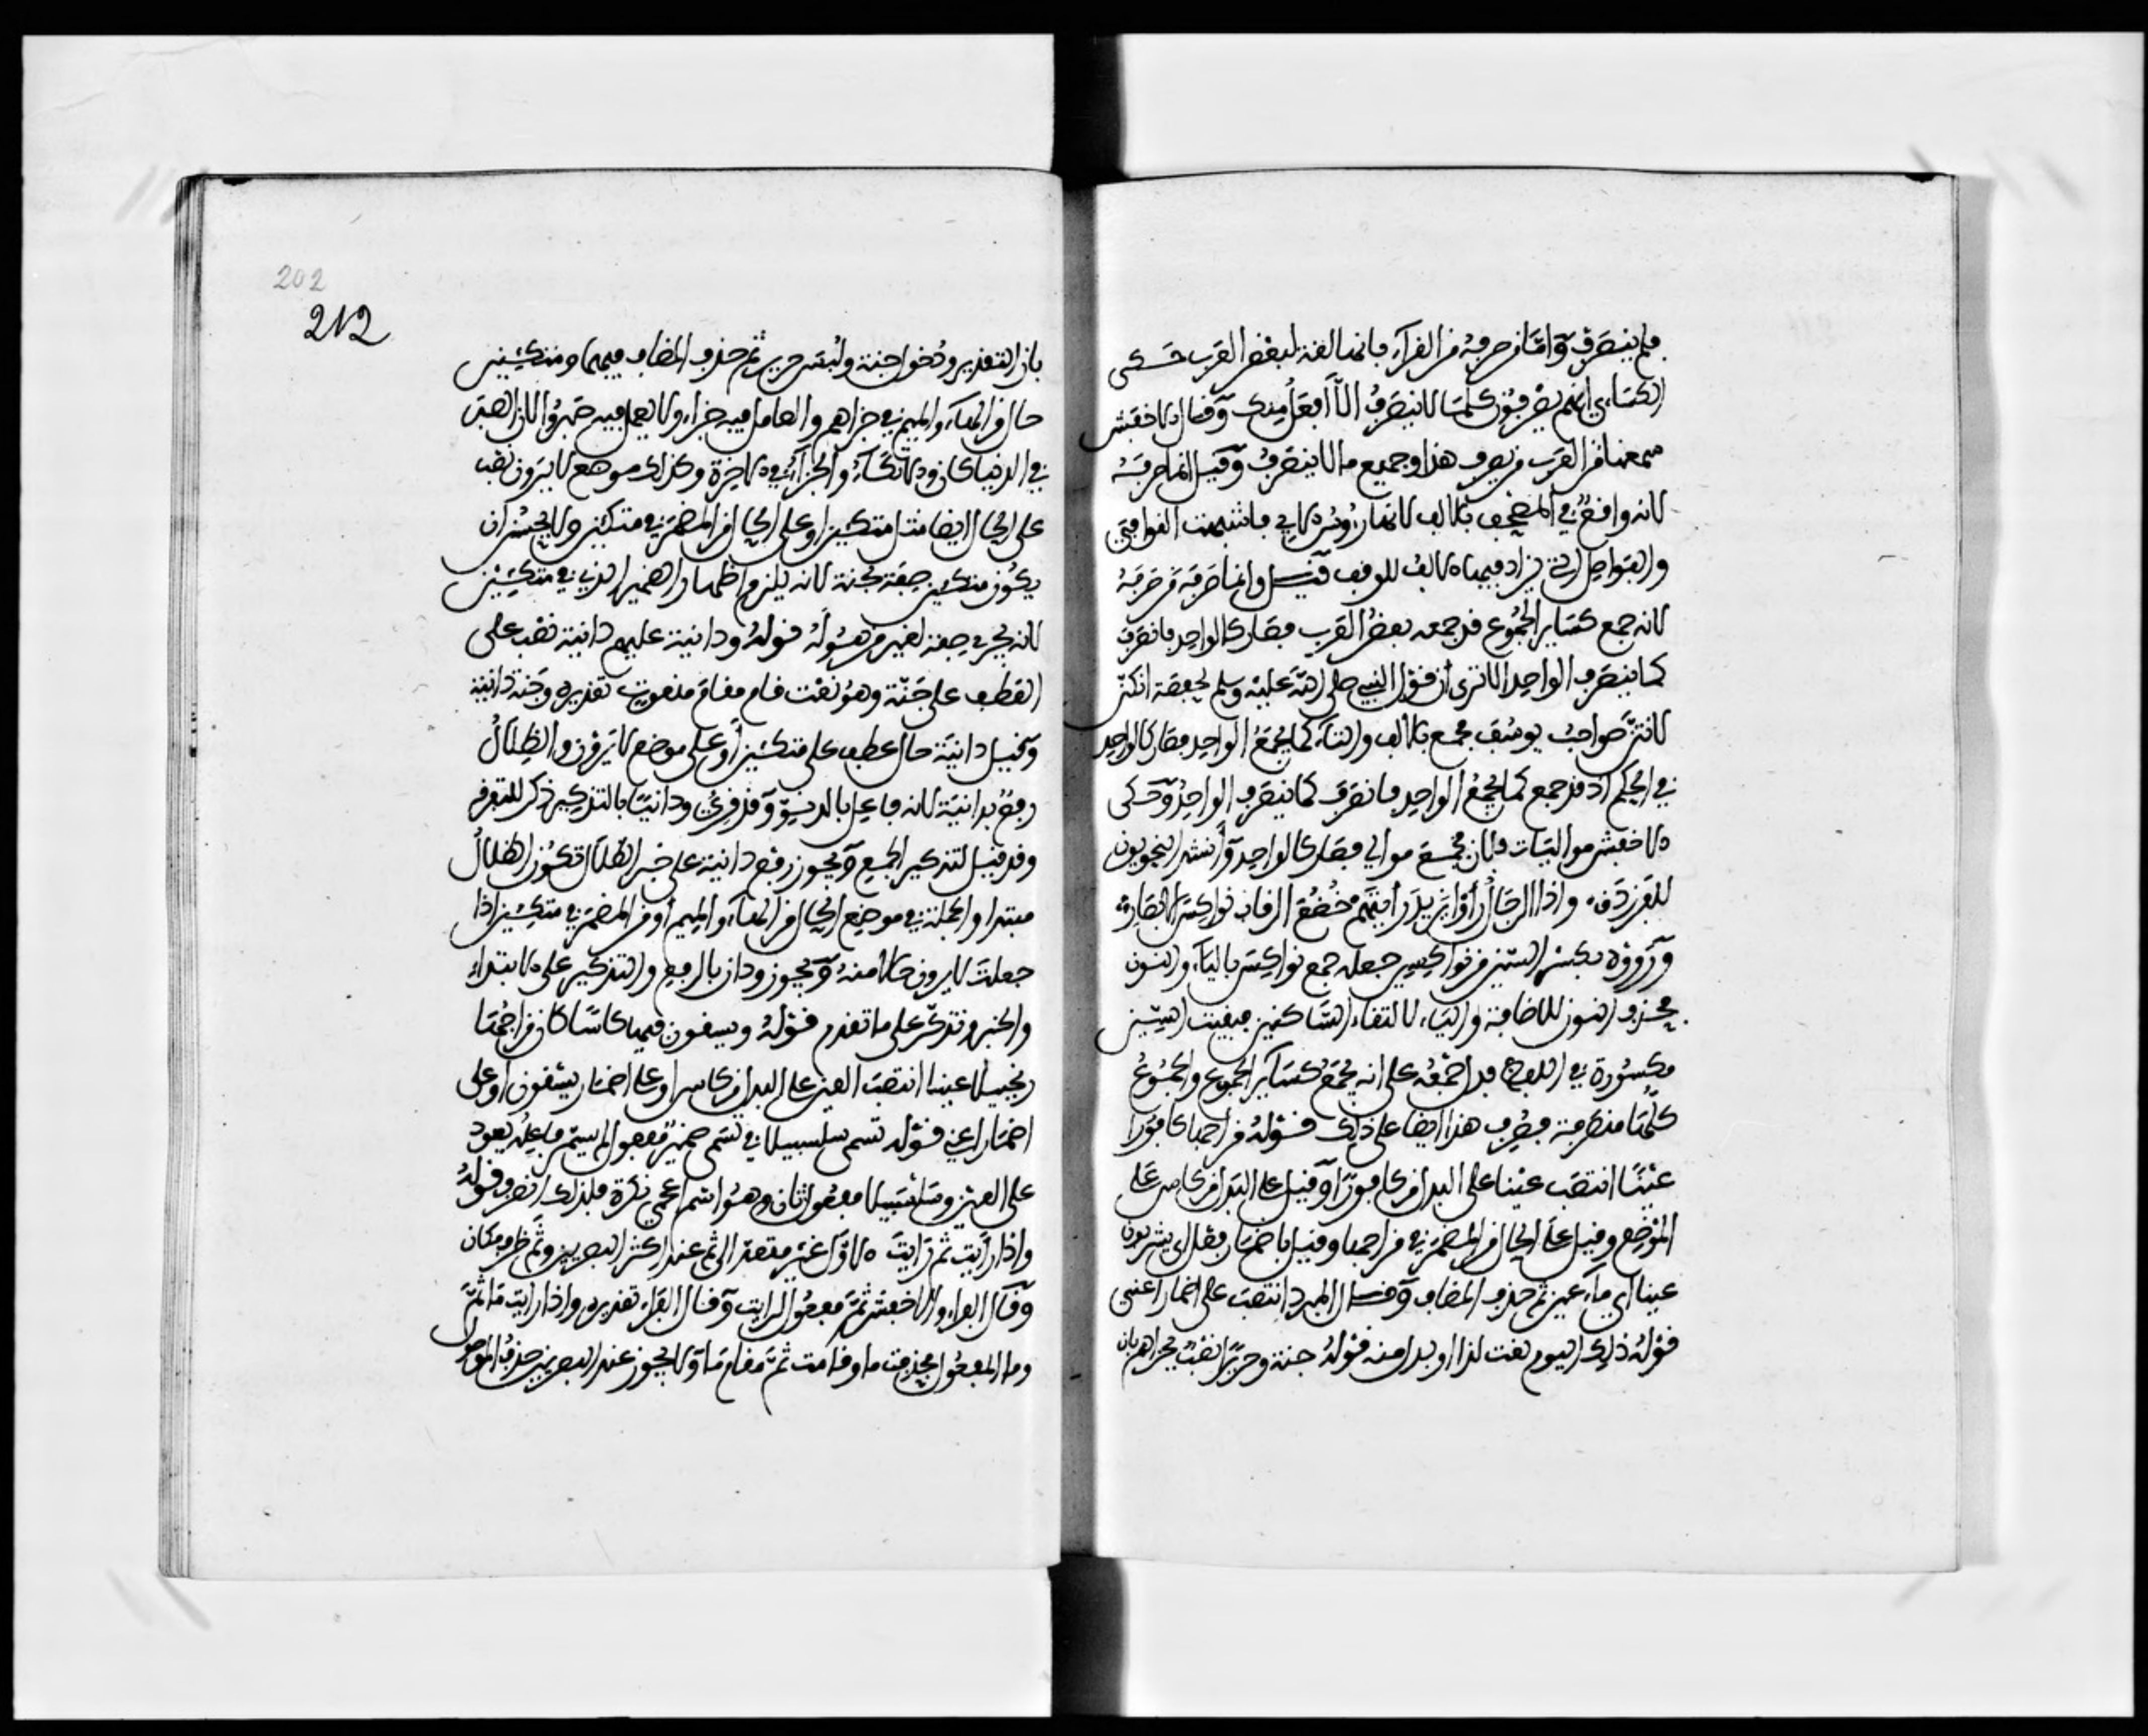 فلم ينصرف وَامّا من صرفه من القرآء فانها لغة لبعض العرب حكى
الكسَاءي انهم يصرفون كلما لا ينصرف الاّ أفعَل منك وَقال الاخفش
سمعنا من العرب من يصرف هذا وجميع ما لا ينصرف وَقيل انما صرفه
لانه وافق في المصحف بالالف لانها رءوس الاي فاشبهت القوافي
والفواصل التي تزاد فيها الالف للوقف قيل وانما صرفه من صرفه
لانه جمع كسَاير الجموع قد جمعه بعض العرب فصَار كالواحد فانصرف
كما ينصرف الواحد الا ترى ان قول النبي صلى الله عليه وسلم لحفصة انكنّ
لانتنّ صواحب يوسُف بجمع بالالف والتاء كما يجمع الواحد فصَار كالواحد
في الحكم اذ قد جمع كما يجمع الواحد فانصرف كما ينصرف الواحد وَحكى
الاخفش مواليات فلان بجمع موالي فصَار كالواحد وَأنشد النحويون
للفرزدق، واذا الرجال رأوا يزيد رأيتهم خضع الرقاب نواكس الابصار،
وَرَووه بكسر السّين من نواكسي جعله جمع نواكس بالياء والنون
فحذف النون للاضافة والياء لالتقاء السّاكنين فبقيت السّين
مكسُورة في اللفظ فدل جمعه على انه يجمع كسَاير الجموع والجمُوع
كلّها منصرفة فصرف هذا ايضا على ذلك قولهُ مزاجها كافورا
عينًا انتصَب عينا على البدل من كافورًا وَقيل على البَدل من كاس على
الموضع وقيل على الحال من المضمر في مزاجها وقيل باضمَار فعل اي يشربون
عينا اي مآء عين ثم حذف المضاف وَقال المبرد انتصَبَ على اضمار اعني
قولهُ ذلك اليوم نعت لذا او بدل منه قولهُ جنة وحريرًا نصب بجزاهم بان
بان التقدير ودُخول جنة ولُبسَ حرير ثم حذف المضاف فيهما ومتكئين
حال من الهاء والميم في جزاهم والعامل فيه جزاء ولا يعمل فيه صَبرُوا لان الصبر
في الدنيا كان والاتكاء والجزآء في الاخرة وكذلك موضع لا يَرون نصب
على الحال ايضا مثل متكئين او على الحال من المضمَر في متكئين ولا يحسُن ان
يكون متكئين صِفَة لجنة لانه يلزم اظهار الضمير الذي في متكئين
لانه يجري صفة لغير من هُو لَهُ قولهُ ودانية عليهم دانية نصب على
العَطف على جَنّة وهو نعت قام مقام منعوت تقديره وجَنة دانية
وَقيل دانية حال عطف على متكئين أو على موضع لا يَرَون والظِلالُ
رفع بدانية لانه فاعل بالدنوّ وَقد قرئ ودانيًا بالتذكير ذكر للتفرقة
وقد قيل لتذكير الجمع وَيجوز رفع دانية على خبر الظلال تكُون الظلالُ
مبتدا والجملة في موضع الحال من الهآء والميم أو من المضمَر في متكئين اذا
جعلتَ لا يرون حالا منهُ وَيجوز ودان بالرفع والتذكير على الابتداء
والخبر وتذكّر على ما تقدم قولهُ ويسقون فيها كاسًا كان مزاجُها
زنجبيلا عينا انتصَب العين على البدل من كاس او على اضمَار يسقون او على
اضمَار اعني قولهُ تسمى سلسبيلا في تسَمى ضميرُ مفعول لم يسمّ فاعله يعود
على العين وسَلسَبيلا مفعول ثان وهُو اسم اعجمي نكرة فلذلك انصرف قولهُ
واذا رَأيتَ ثم رَأيتَ الاوّل غير متعدّ الى ثم عند اكثر البصريين وثَمّ ظرف مكان
وَقال الفراء والاخفش ثمّ مفعول لرايت وَقال الفرّاء تقديره واذا رايت مَا ثَمَّ
وما المفعُول فحذفت ما وقامت ثَمّ مقام مَا وَلا يجوز عند البصريين حذف الموصول
202
212